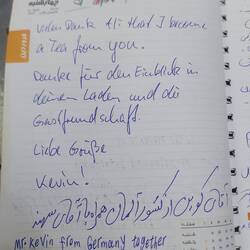 Vielen Dank Ali that I become
a Tea from you.
Danke für den Einblick in
deinen Laden und die
Gastfreundschaft.
Liebe Grüße
Kevin!
آقای کوین از کشور آلمان همراه با آقای
Mr. Kevin from Germany together